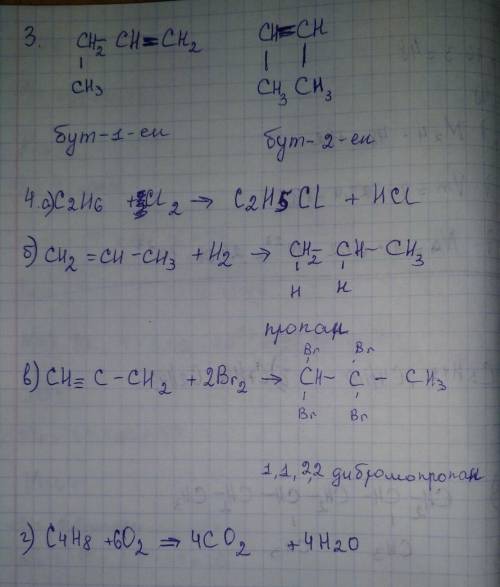 3. CH2- CH=CH2 CH=CH
CH3 CH3 CH3
бут-1-ен бут-2-ен
4.а) C2H6 + Cl2 → C2H5Cl + HCl
б) CH2=CH-CH3 + H2 → CH2-CH-CH3
H H
пропан
Br Br
в) CH≡C-CH2 + 2Br2 → CH-C-CH3
Br Br
1,1,2,2 дибромопропан
г) C4H8 + 6O2 ⇒ 4CO2 + 4H2O